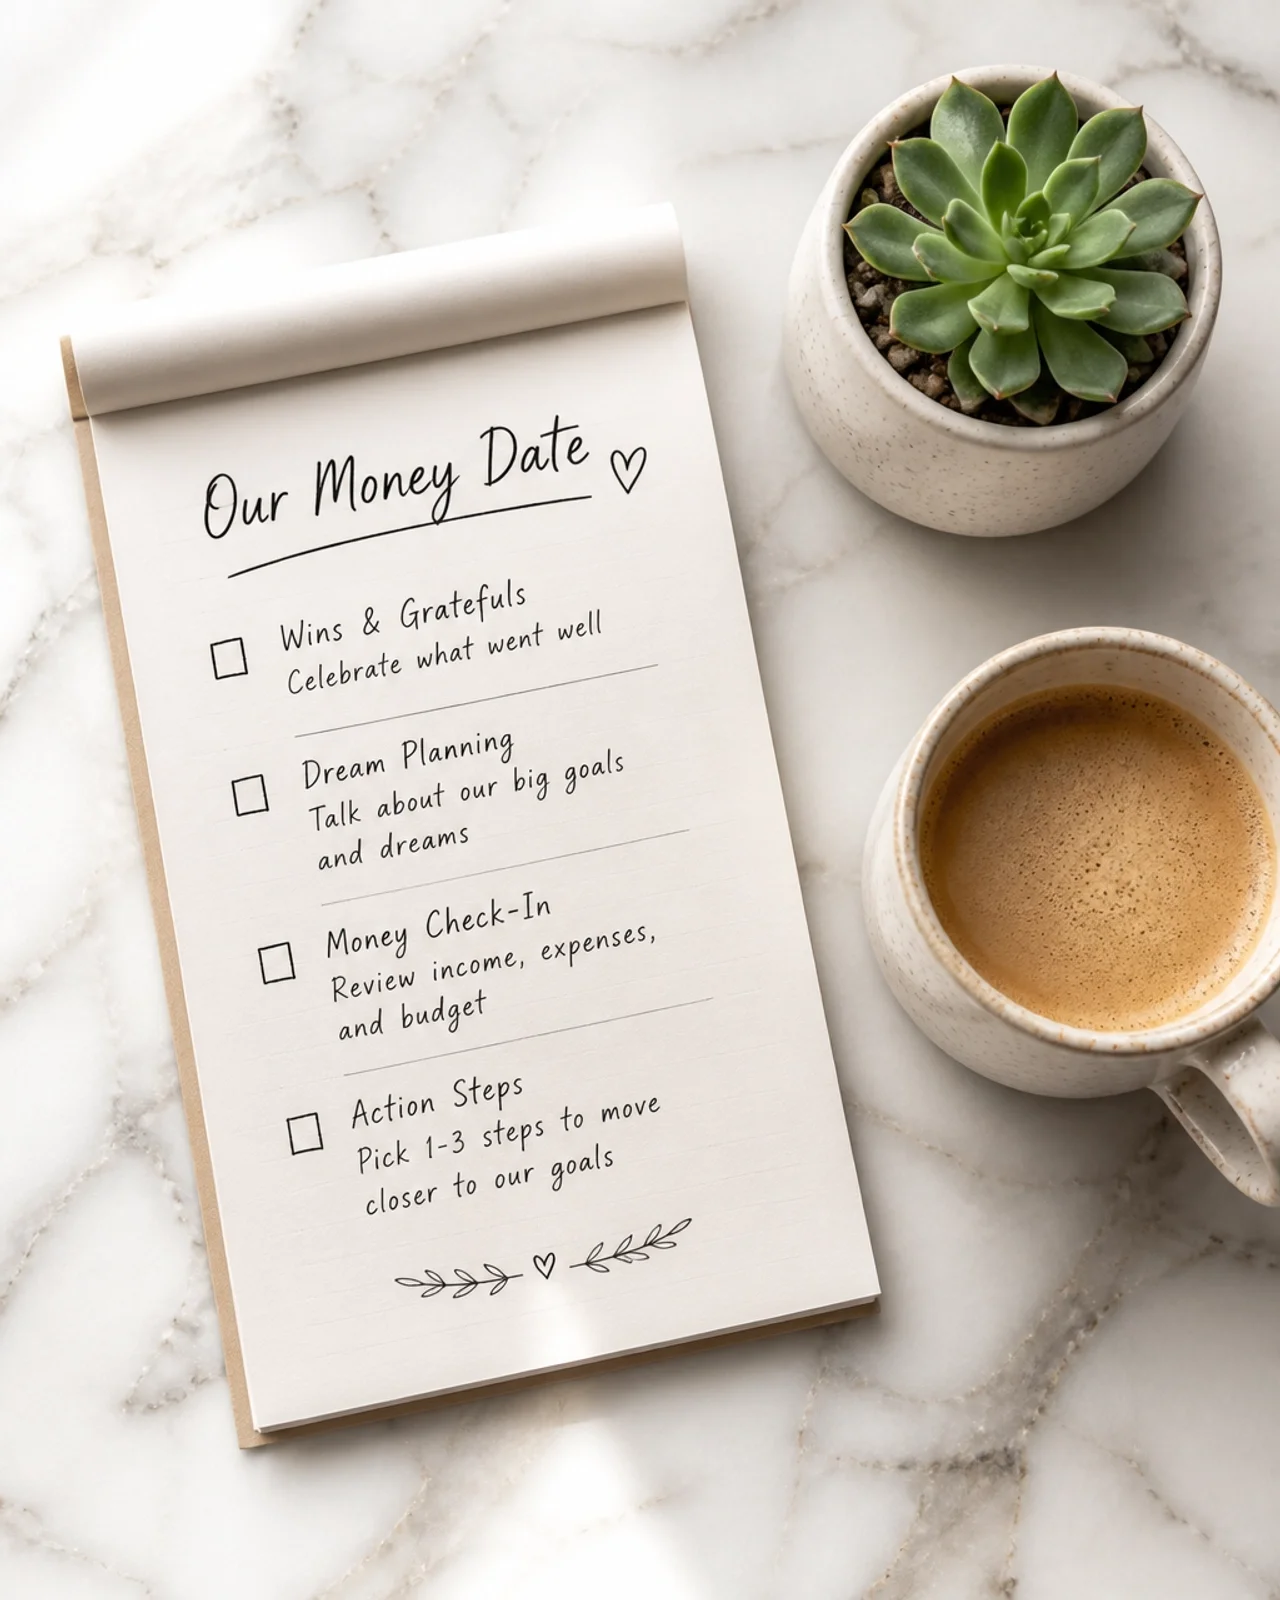 Our Money Date ♡
Wins & Gratefuls
Celebrate what went well
Dream Planning
Talk about our big goals
and dreams
Money Check-In
Review income, expenses,
and budget
Action Steps
Pick 1-3 steps to move
closer to our goals